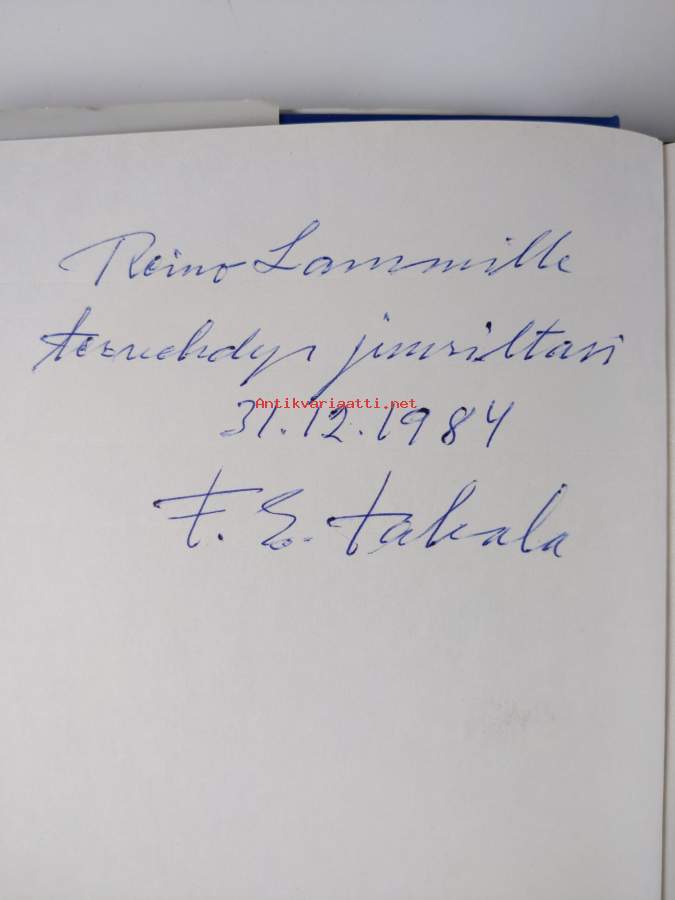 Reino Lammille
tervehdys juuriltasi
Antikvariaatti.net
31.12.1984
F. E. Takala